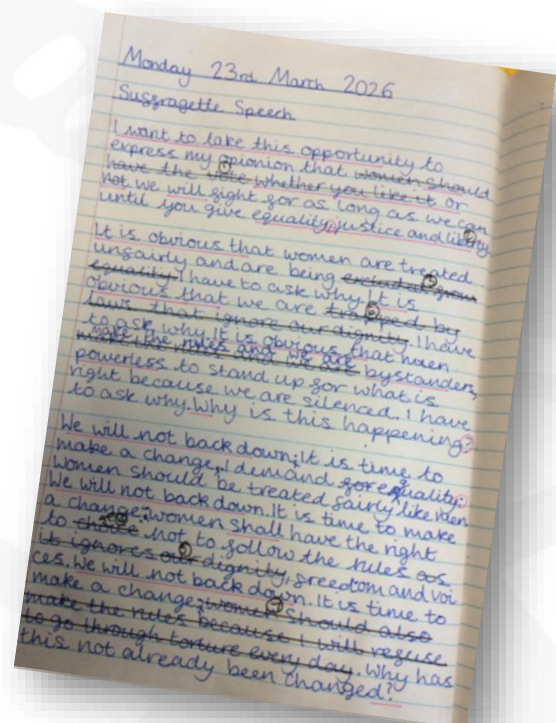 Monday 23rd March 2026
Suffragette Speech
I want to take this opportunity to
express my opionion that women should
have the vote whether you like it or
not we will fight for as long as we can
until you give equality, justice and liberty.
It is obvious that women are treated
unfairly and are being
equality. I have to ask why. It is
obvious that we are trapped by
laws that ignore our dignity. I have
to ask why. It is obvious that
make the rules and we are bystanders,
powerless to stand up for what is
right because we are silenced. I have
to ask why. Why is this happening?
We will not back down; It is time to
make a change. I demand for equality:
Women should be treated fairly like men
We will not back down. It is time to make
a change: women shall have the right
to not to follow the rules
it ignores our dignity, freedom and voi
ces. We will not back down. It is time to
make a change: women should also
make the rules because I will refuse
to go through torture every day. Why has
this not already been changed?